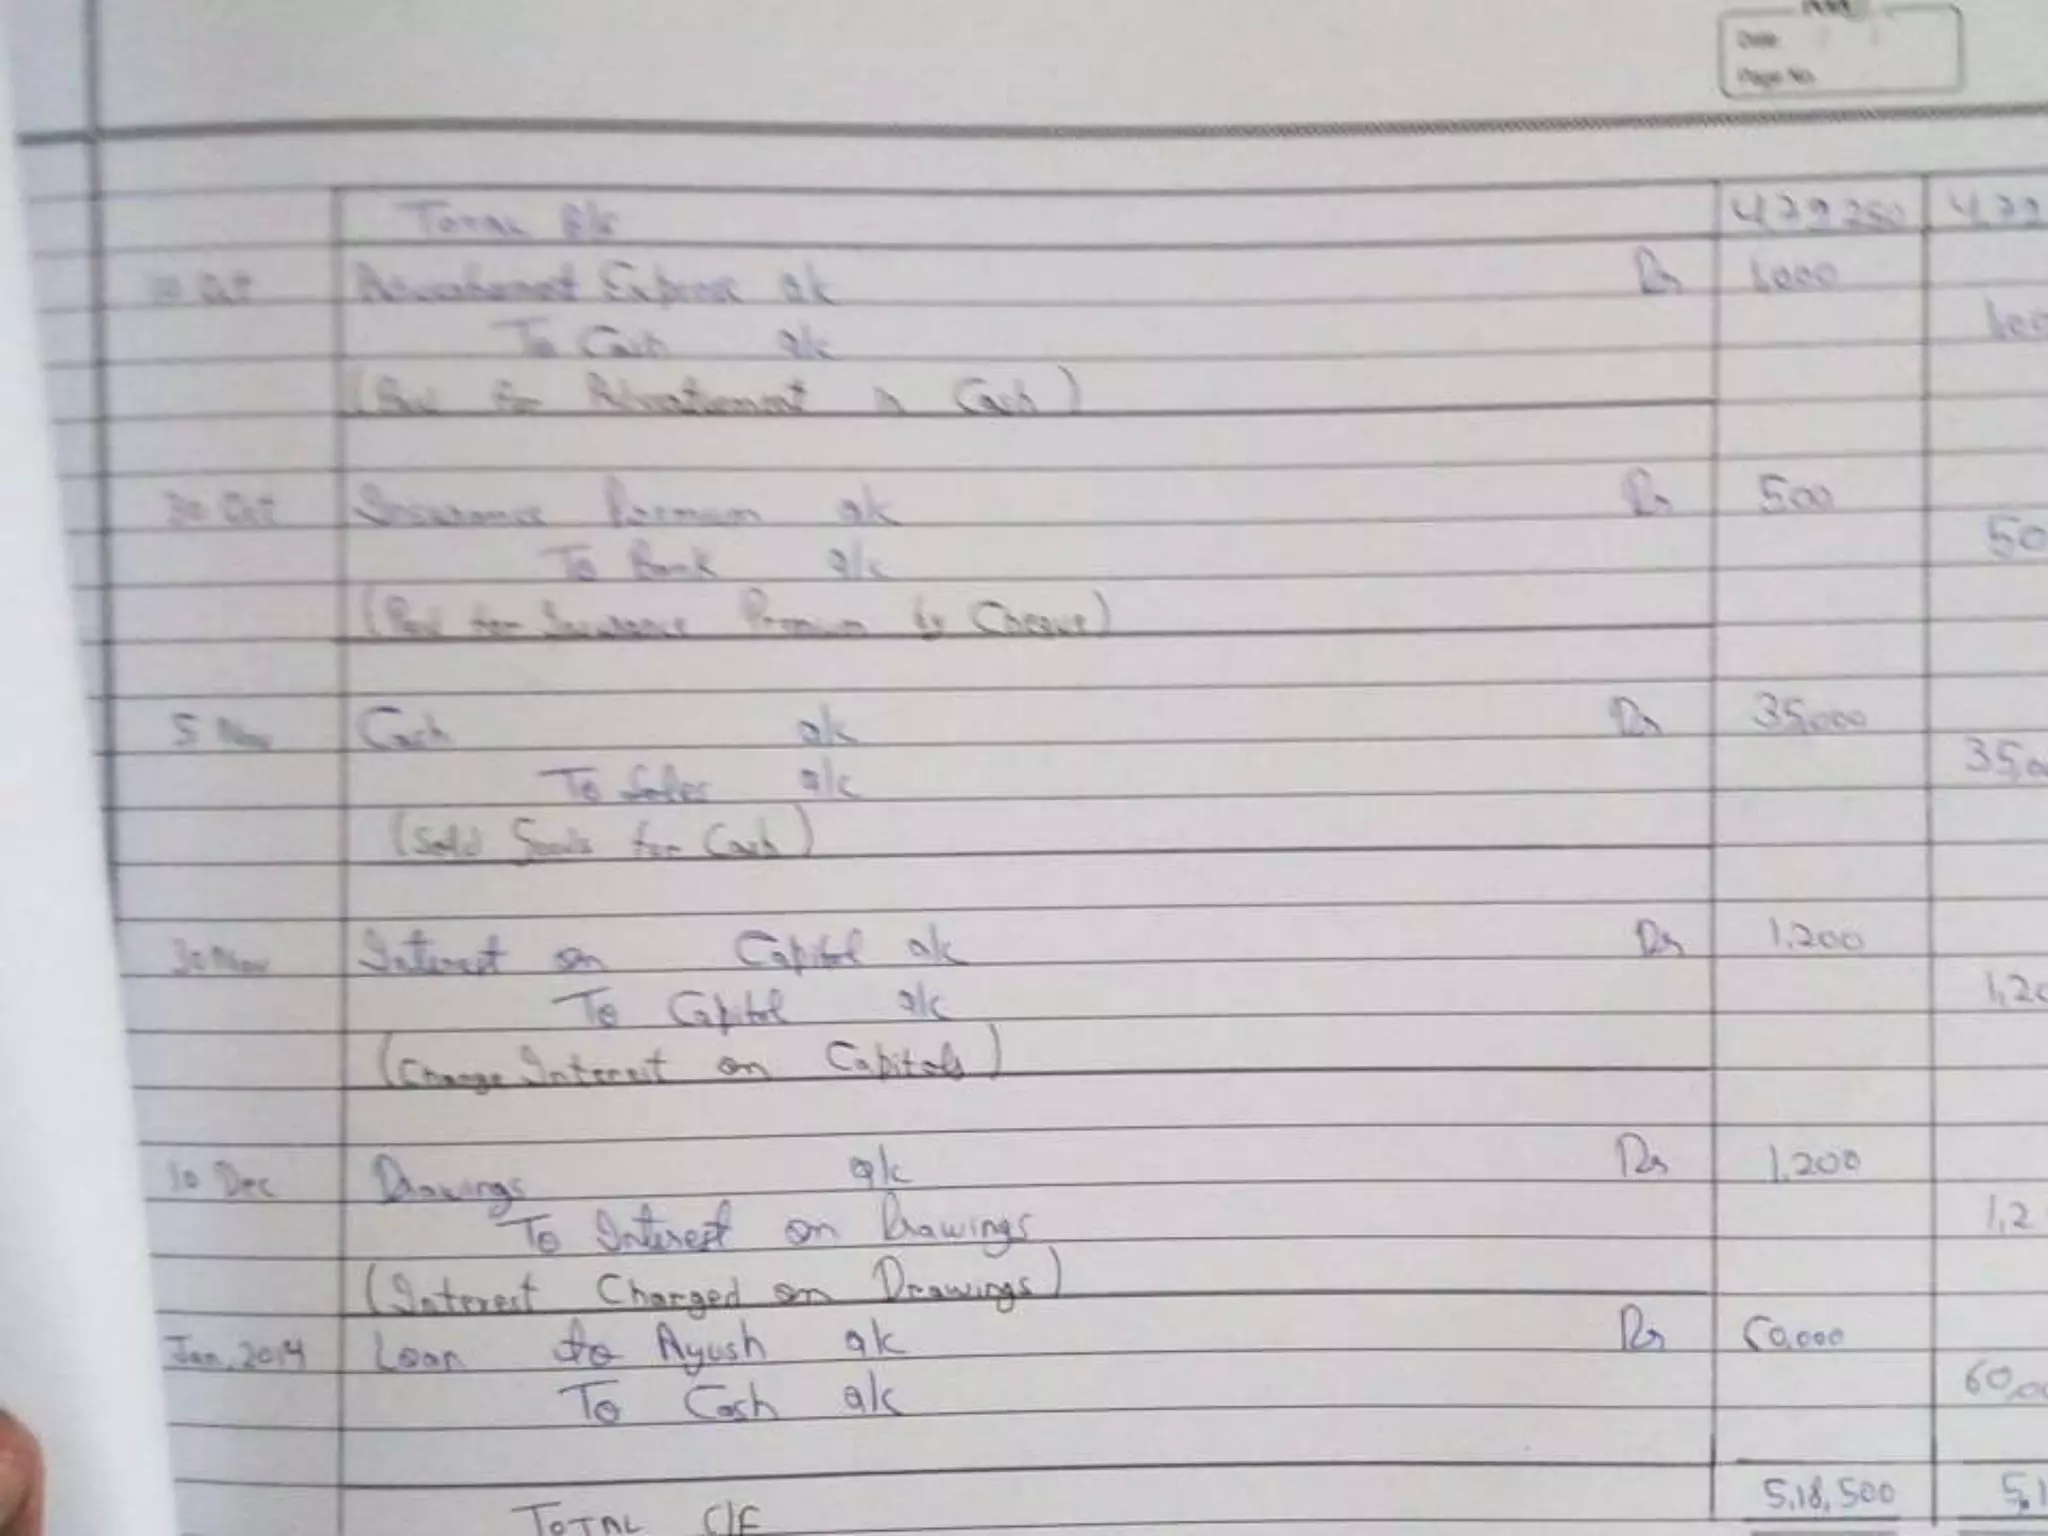 Date
Page No.
TOTAL B/f 4,79,250 4,79
30 Oct Advertisement Expense a/c Dr 1,000
To Cash a/c 1,00
(Paid for Advertisement in Cash)
30 Oct Insurance Premium a/c Dr 500
To Bank a/c 50
(Paid for Insurance Premium by Cheque)
5 Nov Cash a/c Dr 35,000
To Sales a/c 35,0
(Sold Goods for Cash)
30 Nov Interest on Capital a/c Dr 1,200
To Capital a/c 1,20
(Charge Interest on Capitals)
10 Dec Drawings a/c Dr 1,200
To Interest on Drawings 1,2
(Interest Charged on Drawings)
Jan, 2014 Loan to Ayush a/c Dr 60,000
To Cash a/c 60,00
TOTAL C/F 5,18,500 5,1